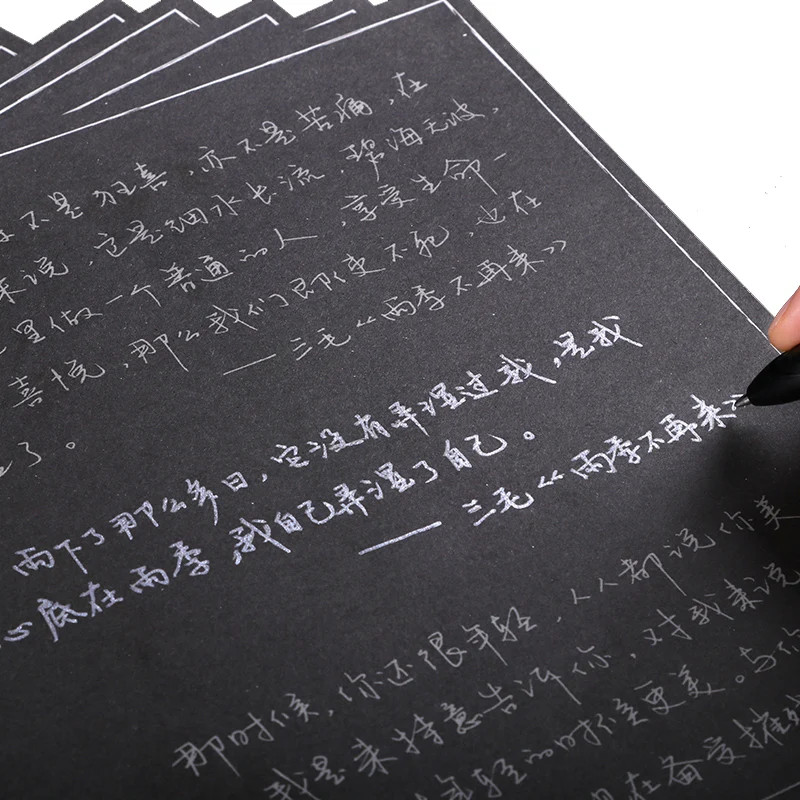 不是狂喜，亦不是苦痛，在
来说，它是细水长流，碧海无波，
里做一个普通的人，享受生命一
喜悦，那么我们即使不死，也在
了。
——三毛《雨季不再来》
雨下了那么多日，它没有弄湿过我，是我
心底在雨季，我自己弄湿了自己。
——三毛《雨季不再来
那时候，你还很年轻，人人都说你美
我是来特意告诉你，对我来说
年轻的时候更美。与你
现在备受摧残